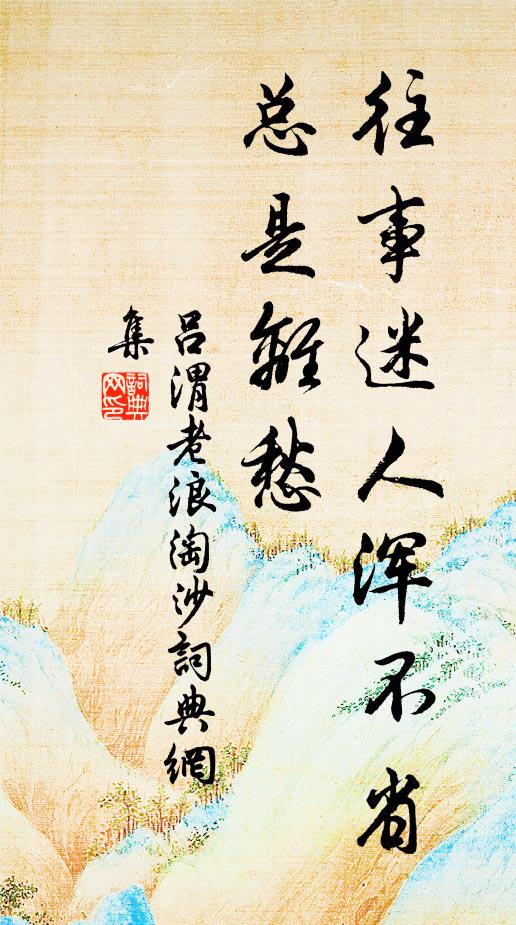 往事迷人浑不省
总是離愁
吕渭老浪淘沙詞典網
集
詞典网印